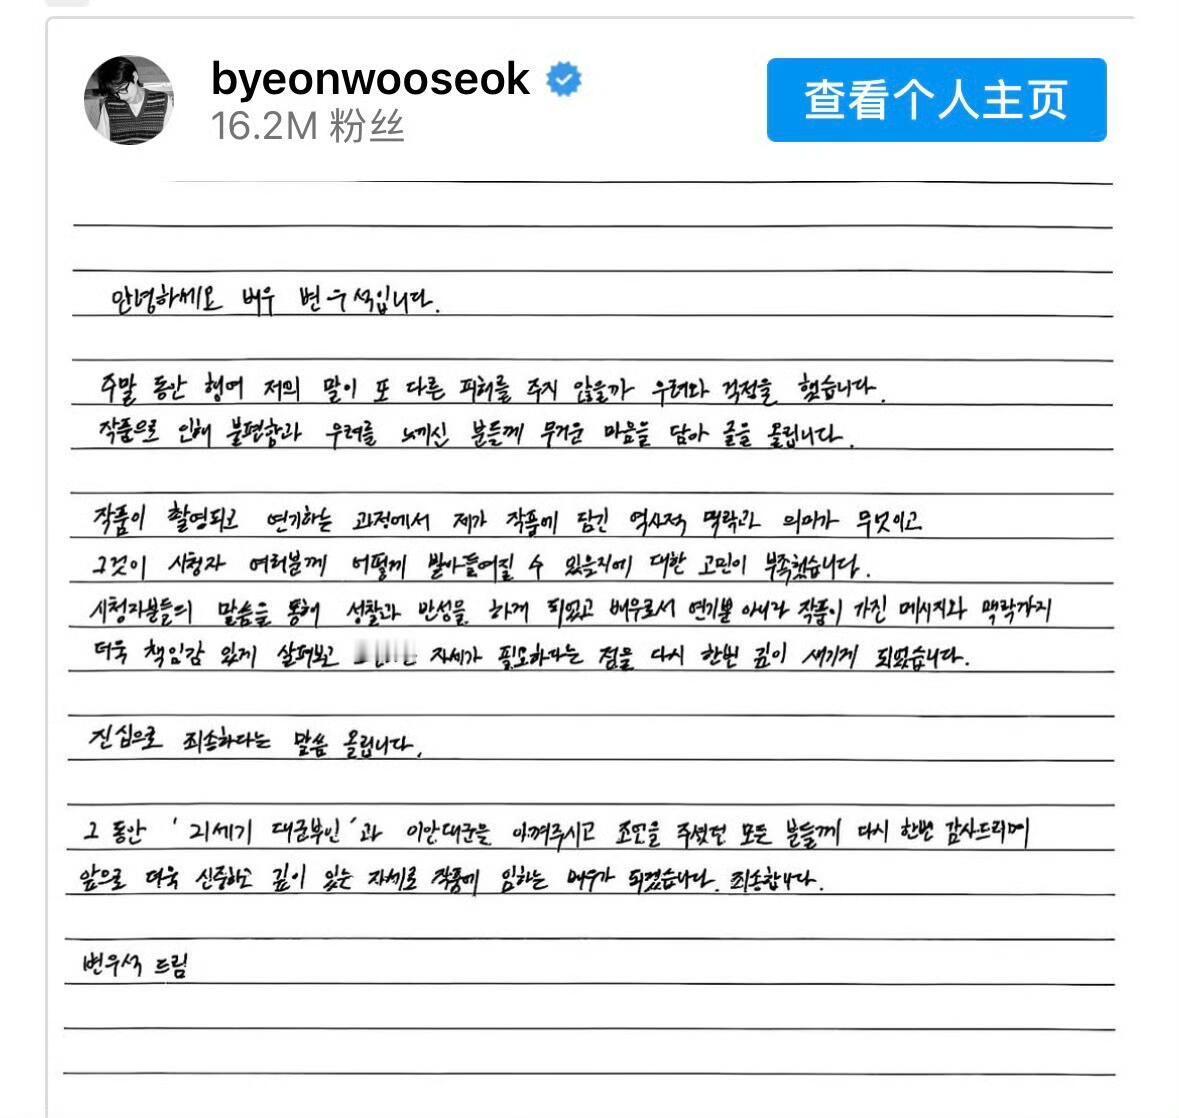 byeonwooseok
16.2M 粉丝
查看个人主页
안녕하세요 배우 변우석입니다.
주말 동안 혹여 저의 말이 또 다른 피해를 주지 않을까 우려와 걱정을 했습니다.
작품으로 인해 불편함과 우려를 느끼신 분들께 무거운 마음을 담아 글을 올립니다.
작품이 촬영되고 연기하는 과정에서 제가 작품에 담긴 역사적 맥락과 의미가 무엇이고
그것이 시청자 여러분께 어떻게 받아들여질 수 있을지에 대한 고민이 부족했습니다.
시청자분들의 말씀을 통해 성찰과 반성을 하게 되었고 배우로서 연기뿐 아니라 작품이 가진 메시지와 맥락까지
더욱 책임감 있게 살펴보고 자세가 필요하다는 점을 다시 한번 깊이 새기게 되었습니다.
진심으로 죄송하다는 말씀 올립니다.
그 동안 '21세기 대군부인'과 이안대군을 아껴주시고 조언을 주셨던 모든 분들께 다시 한번 감사드리며
앞으로 더욱 신중하고 깊이 있는 자세로 작품에 임하는 배우가 되겠습니다. 죄송합니다.
변우석 드림